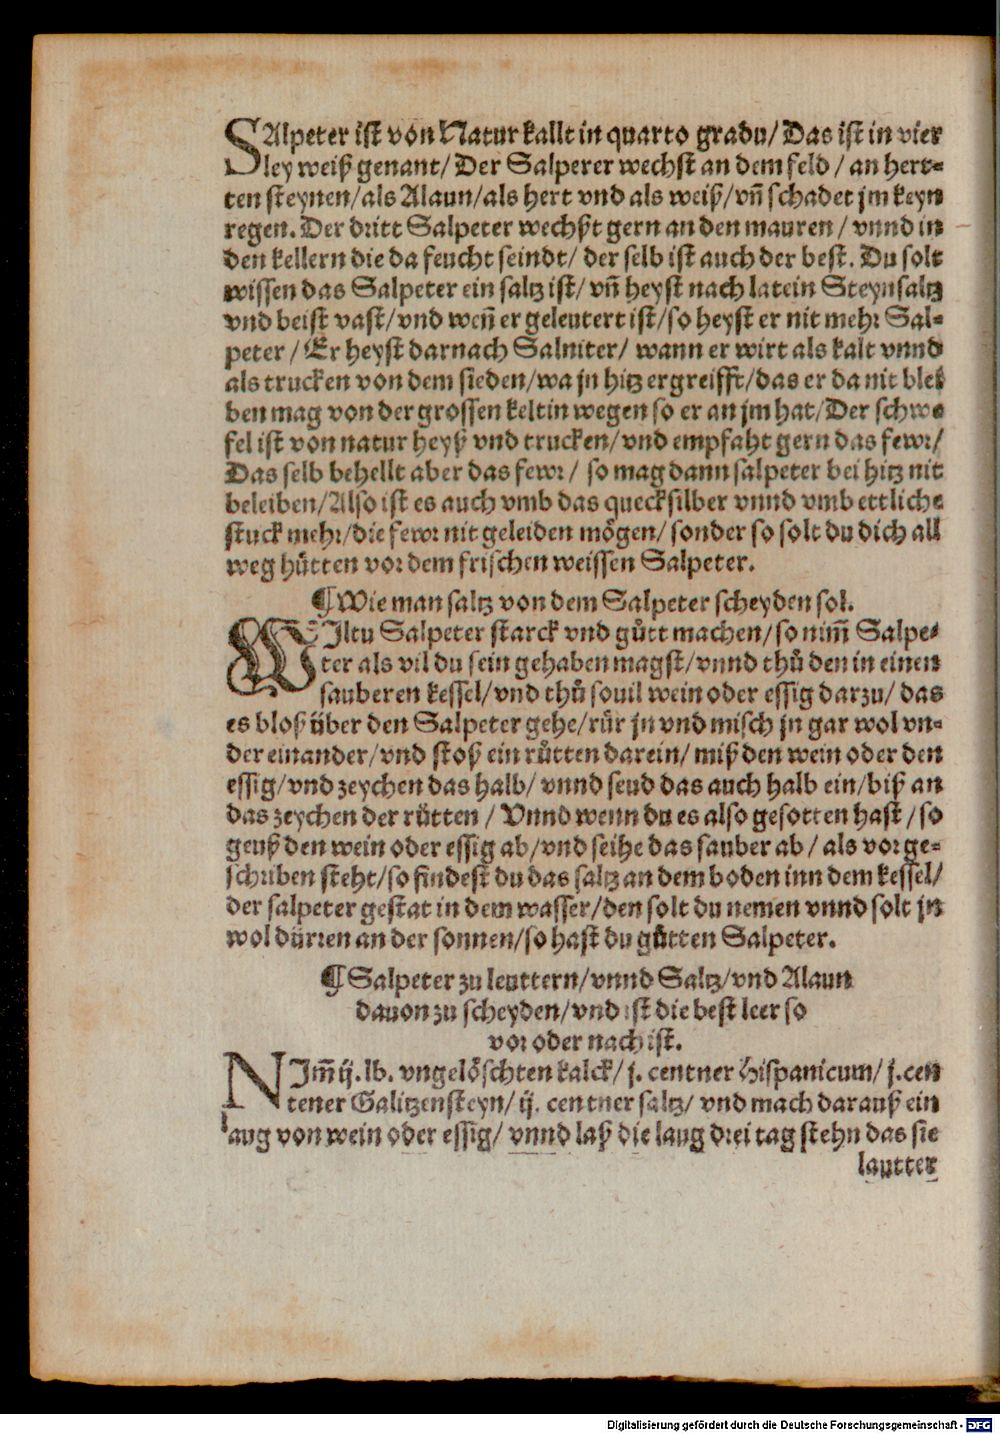 SAlpeter ist von Natur kallt in quarto gradu/ Das ist in vier
ley weiß genant/ Der Salperer wechst an dem feld / an hert-
ten steynen/als Alaun/als hert vnd als weiß/vñ schadet jm keyn
regen. Der dritt Salpeter wechßt gern an den mauren / vnnd in
den kellern die da feucht seindt/ der selb ist auch der best. Du solt
wissen das Salpeter ein saltz ist/ vñ heyst nach latein Steynsaltz
vnd beist vast/vnd weñ er geleutert ist/so heyst er nit mehr Sal-
peter / Er heyst darnach Salniter/ wann er wirt als kalt vnnd
als trucken von dem sieden/wa jn hitz ergreifft/das er da nit blei
ben mag von der grossen keltin wegen so er an jm hat/Der schwe
fel ist von natur heyß vnd trucken/vnd empfaht gern das fewr/
Das selb behellt aber das fewr/ so mag dann salpeter bei hitz nit
beleiben/Also ist es auch vmb das quecksilber vnnd vmb ettliche
stuck mehr/die fewr nit geleiden mögen/ sonder so solt du dich all
weg hůtten vor dem frischen weissen Salpeter.
¶ Wie man saltz von dem Salpeter scheyden sol.
WJltu Salpeter starck vnd gůtt machen/so nim̃ Salpe-
ter als vil du sein gehaben magst/vnnd thů den in einen
sauberen kessel/vnd thů souil wein oder essig darzu/ das
es bloß über den Salpeter gehe/rür jn vnd misch jn gar wol vn-
der einander/vnd stoß ein růtten darein/ miß den wein oder den
essig/vnd zeychen das halb/ vnnd seud das auch halb ein/biß an
das zeychen der růtten / Vnnd wenn du es also gesotten hast /so
geuß den wein oder essig ab/vnd seihe das sauber ab/ als vor ge-
schriben steht/so findest du das saltz an dem boden inn dem kessel/
der salpeter gestat in dem wasser/den solt du nemen vnnd solt jn
wol dürren an der sonnen/so hast du gůtten Salpeter.
¶ Salpeter zu leuttern/vnnd Saltz/vnd Alaun
dauon zu scheyden/vnd ist die best leer so
vor oder nach ist.
NJm̃ ij. lb. vngelöschten kalck/ j. centner Hispanicum/ j. cen
tener Galitzensteyn/ ij. centner saltz/ vnd mach darauß ein
laug von wein oder essig/ vnnd laß die laug drei tag stehn das sie
lautter
Digitalisierung gefördert durch die Deutsche Forschungsgemeinschaft - DFG